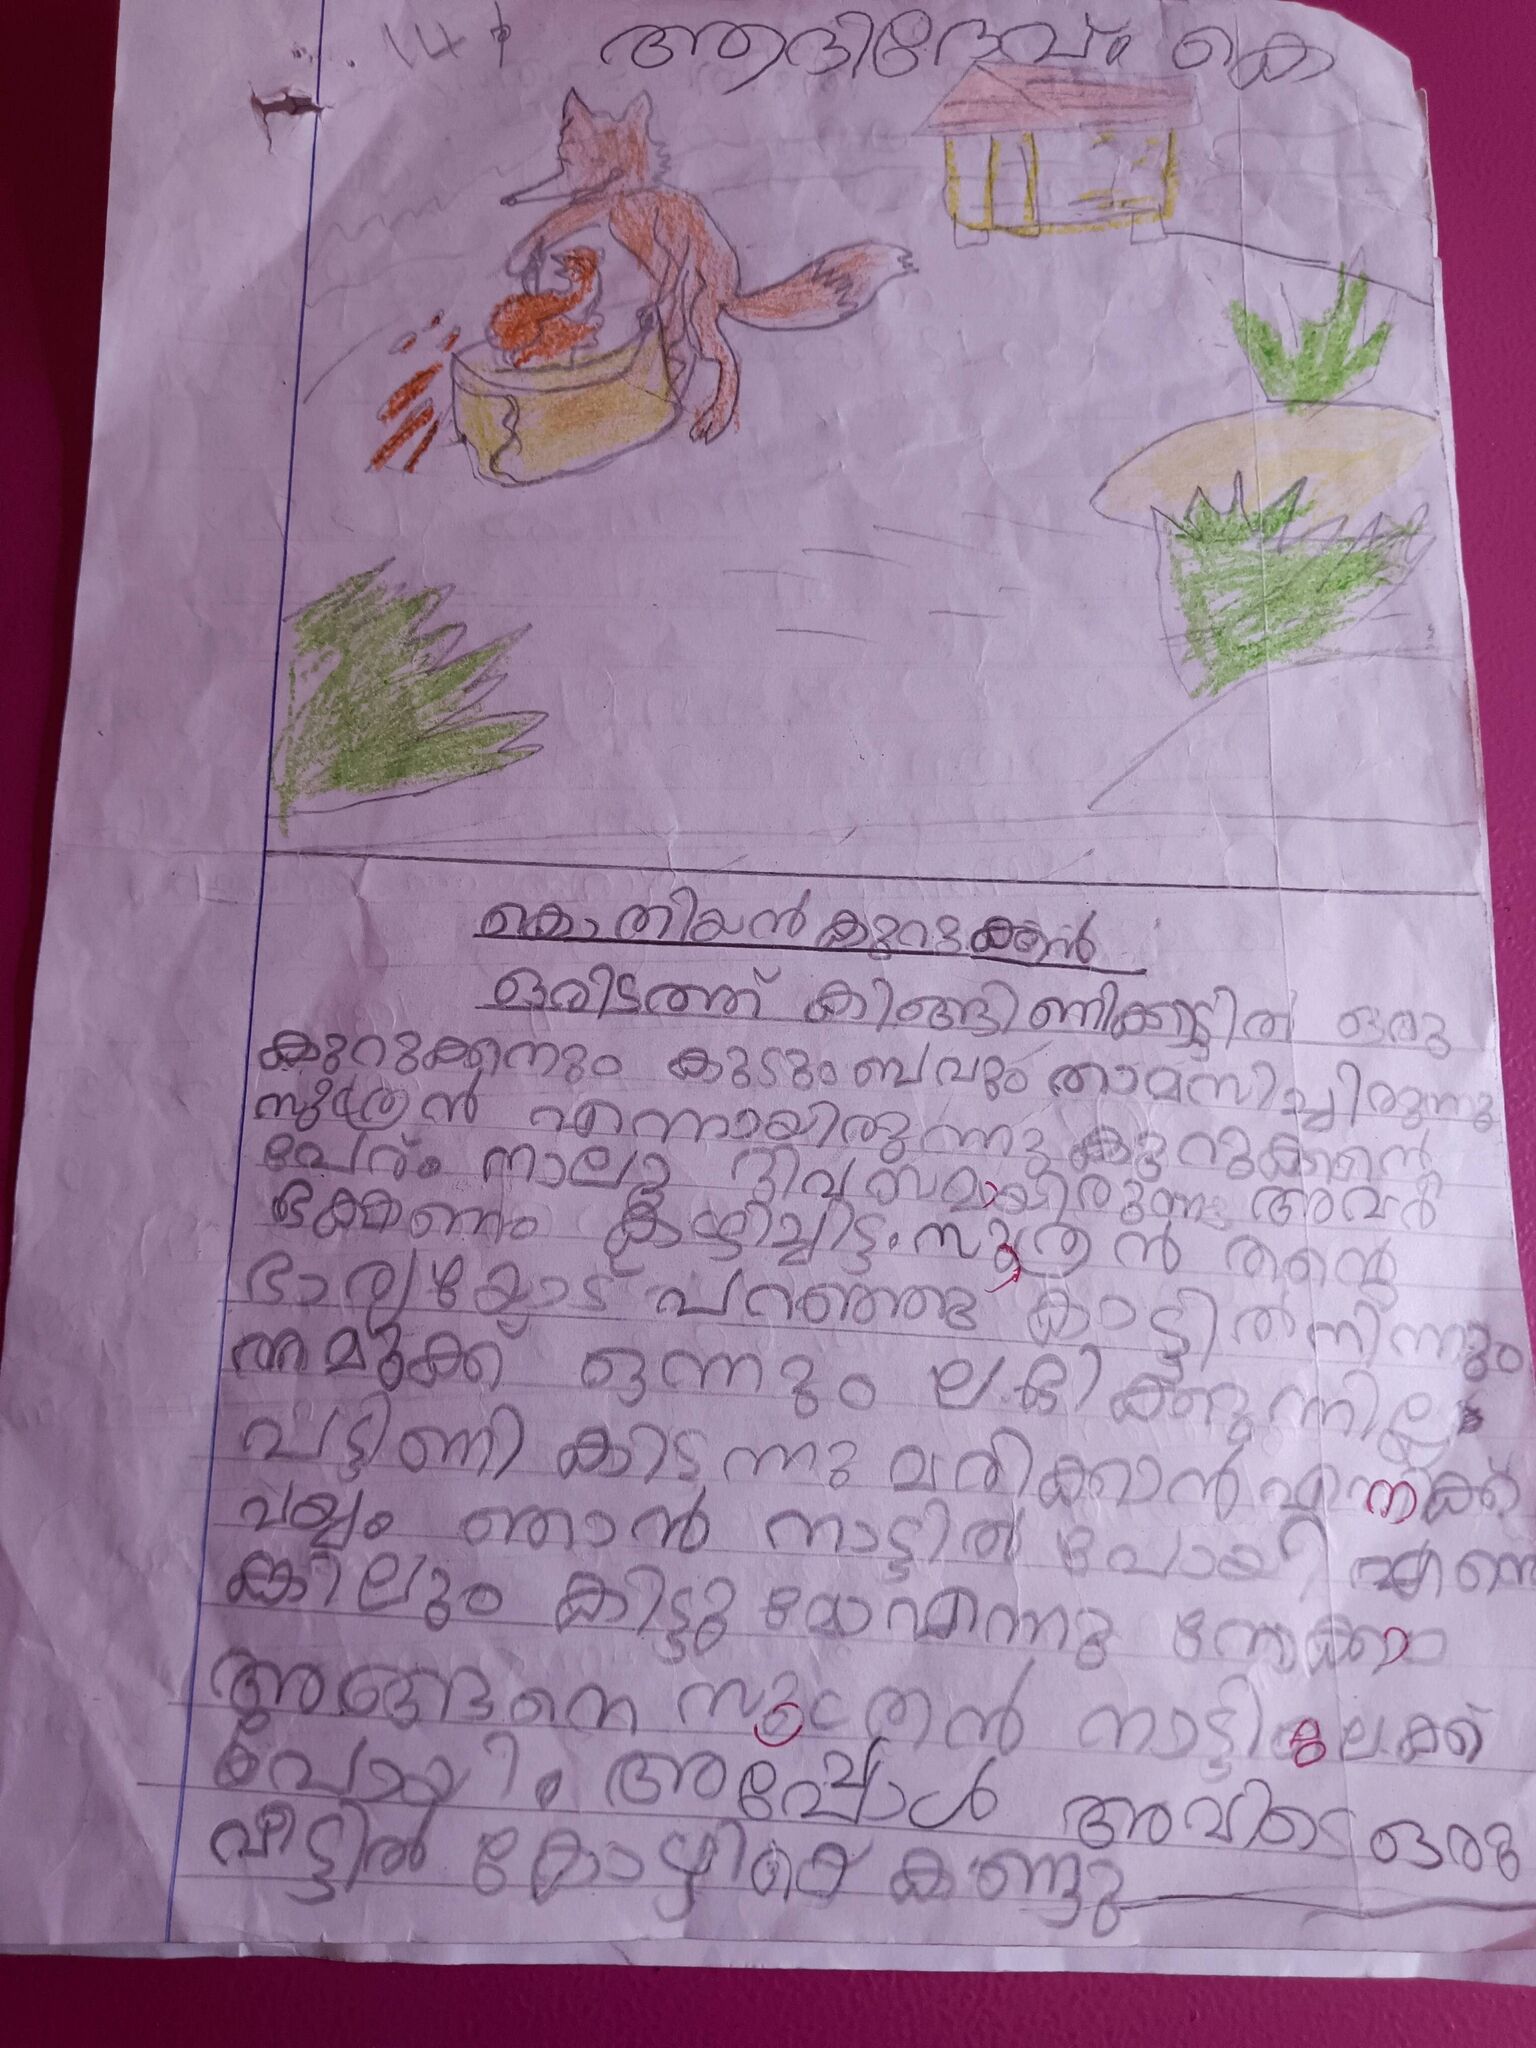 ആദിദേവ് കെ
കൊതിയൻ കുറുക്കൻ
ഒരിടത്ത് കിങ്ങിണിക്കാട്ടിൽ ഒരു
കുറുക്കനും കുടുംബവും താമസിച്ചിരുന്നു
സൂത്രൻ എന്നായിരുന്നു കുറുക്കന്റെ
പേര്. നാലു ദിവസമായിരുന്നു അവർ
ഭക്ഷണം കഴിച്ചിട്ട്. സൂത്രൻ തന്റെ
ഭാര്യയോട് പറഞ്ഞു കാട്ടിൽ നിന്നും
നമുക്ക് ഒന്നും ലഭിക്കുന്നില്ല
പട്ടിണി കിടന്നു മരിക്കാൻ എനിക്ക്
വയ്യ. ഞാൻ നാട്ടിൽ പോയി എന്തെ
ങ്കിലും കിട്ടുമോ എന്നു നോക്കാം
അങ്ങനെ സൂത്രൻ നാട്ടിലേക്ക്
പോയി. അപ്പോൾ അവിടെ ഒരു
വീട്ടിൽ കോഴിയെ കണ്ടു